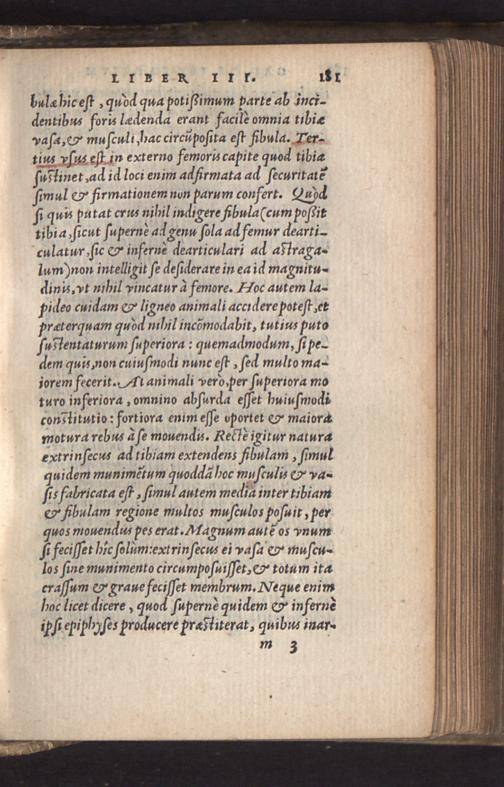 LIBER III. 181
bulæ hic est, quòd qua potißimum parte ab inci-
dentibus foris lædenda erant facilè omnia tibiæ
vasa, & musculi, hac circũposita est fibula. Ter-
tius vsus est in externo femoris capite quod tibia
sustinet, ad id loci enim adfirmata ad securitatẽ
simul & firmationem non parum confert. Quòd
si quis putat crus nihil indigere fibula (cum poßit
tibia, sicut supernè ad genu sola ad femur dearti-
culatur, sic & infernè dearticulari ad astraga-
lum) non intelligit se desiderare in ea id magnitu-
dinis, vt nihil vincatur à femore. Hoc autem la-
pideo cuidam & ligneo animali accidere potest, et
præterquam quòd nihil incõmodabit, tutius puto
sustentaturum superiora: quemadmodum, si pe-
dem quis, non cuiusmodi nunc est, sed multo ma-
iorem fecerit. At animali verò, per superiora mo
turo inferiora, omnino absurda esset huiusmodi
constitutio: fortiora enim esse oportet & maiora
motura rebus à se mouendis. Rectè igitur natura
extrinsecus ad tibiam extendens fibulam, simul
quidem munimẽtum quoddã hoc musculis & va-
sis fabricata est, simul autem media inter tibiam
& fibulam regione multos musculos posuit, per
quos mouendus pes erat. Magnum autẽ os vnum
si fecisset hîc solum: extrinsecus ei vasa & muscu-
los sine munimento circumposuisset, & totum ita
crassum & graue fecisset membrum. Neque enim
hoc licet dicere, quod supernè quidem & infernè
ipsi epiphyses producere præstiterat, quibus inar-
m 3